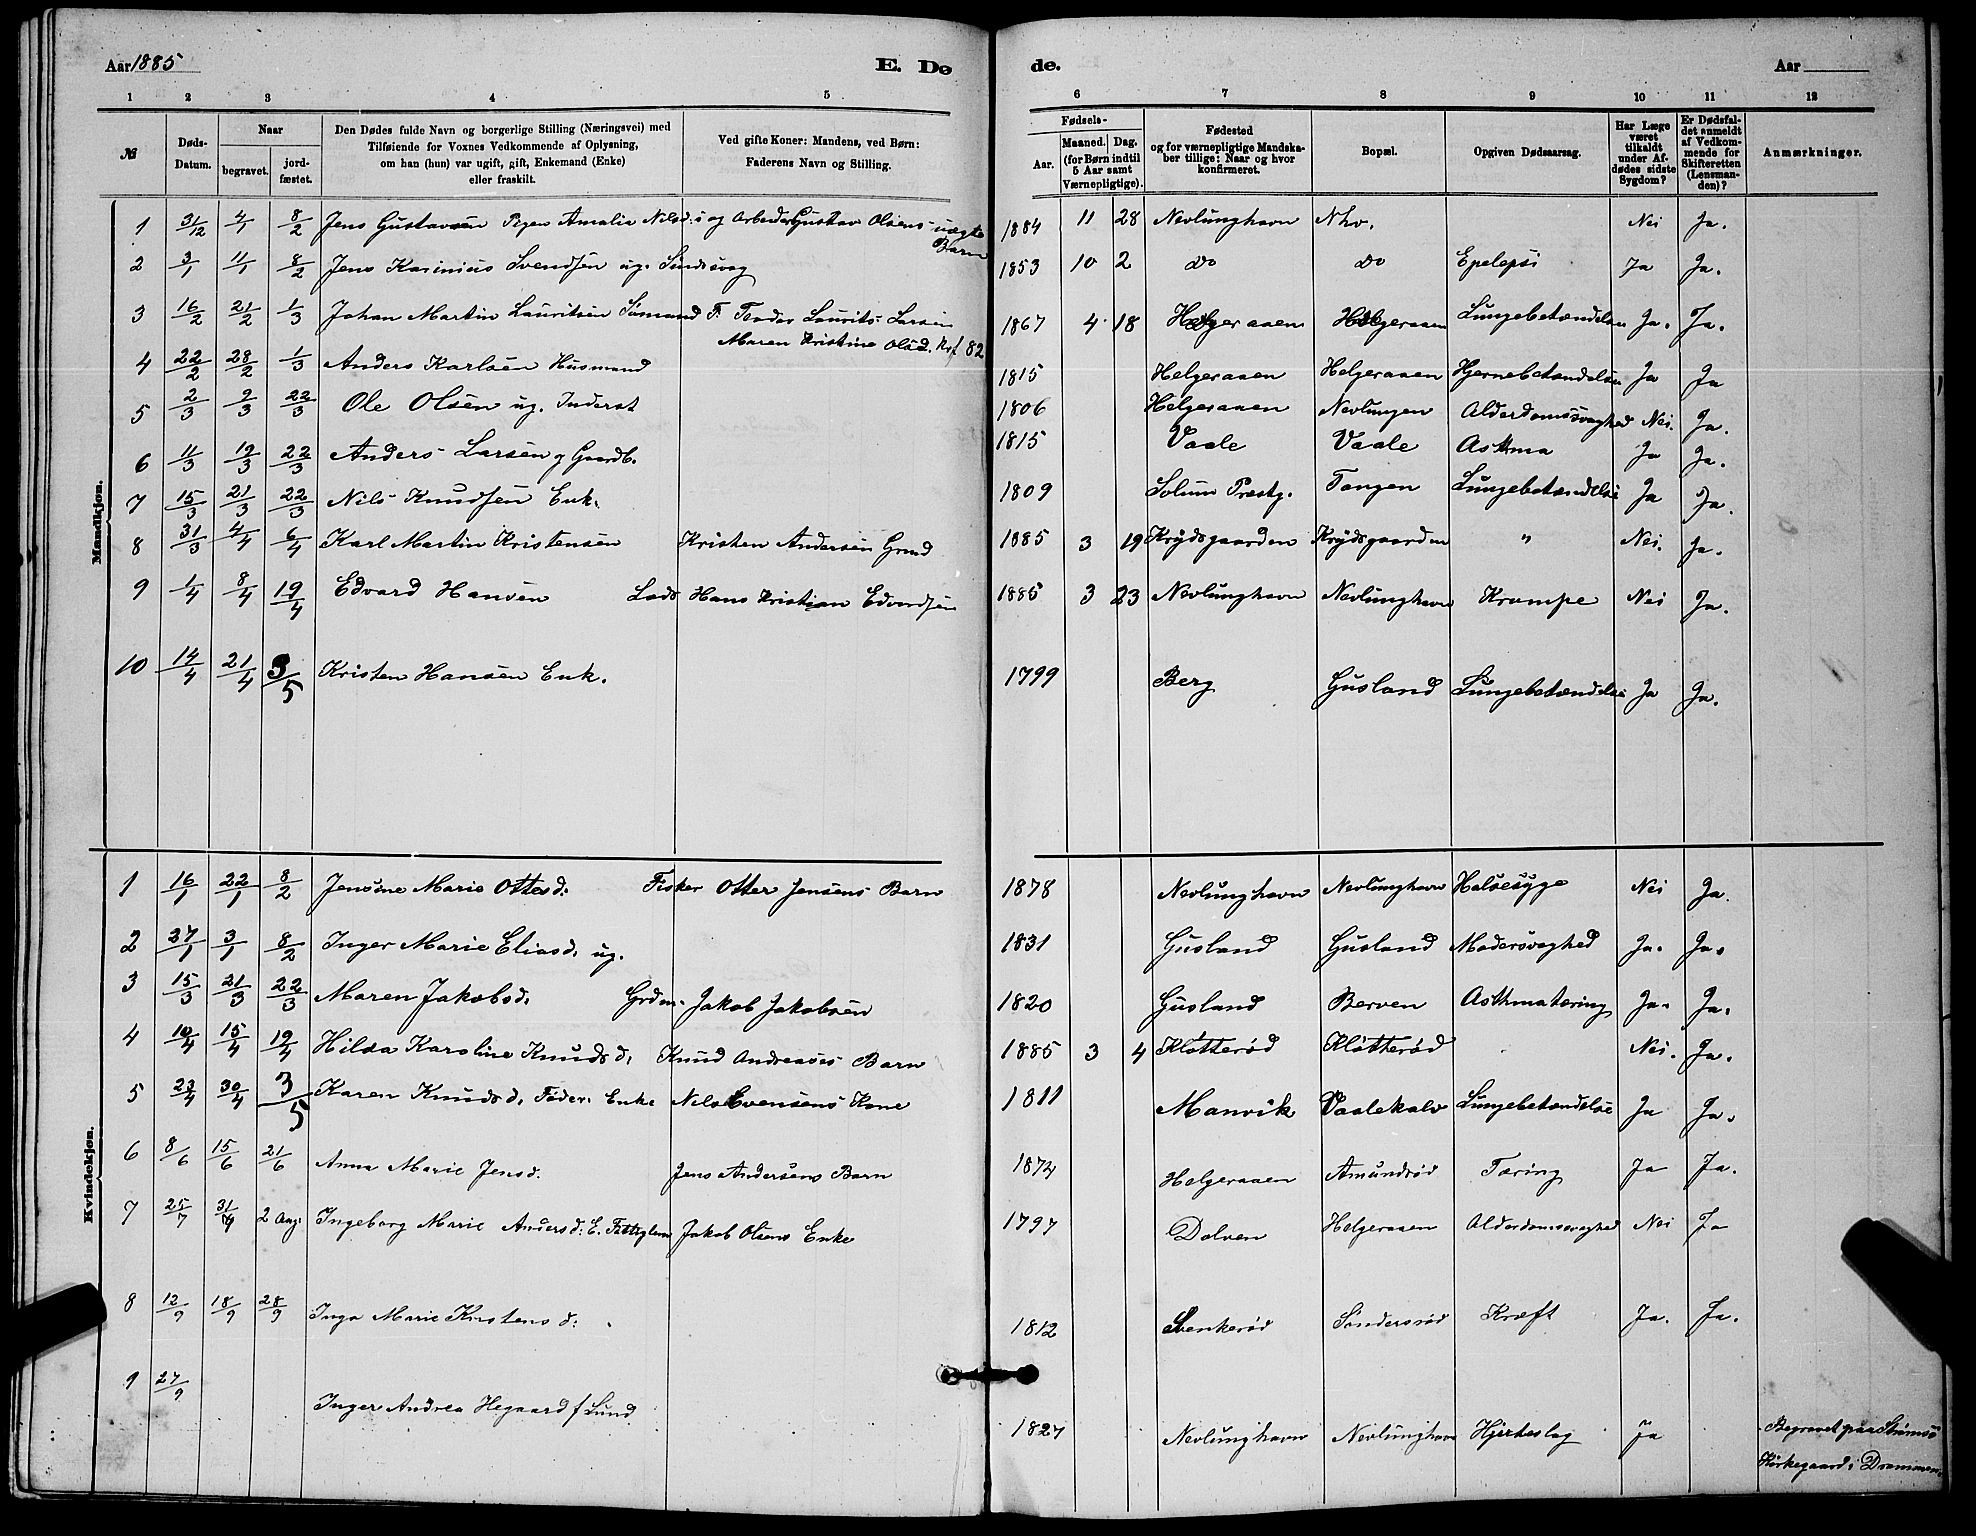 Aar 1885
E. Dø
de.
Aar
1 2 3 4 5 6 7 8 9 10 11 12
№
Døds-Datum.
Naar
begravet.
jord-fæstet.
Den Dødes fulde Navn og borgerlige Stilling (Næringsvei) med
Tilføiende for Voxnes Vedkommende af Oplysning,
om han (hun) var ugift, gift, Enkemand (Enke)
eller fraskilt.
Ved gifte Koner: Mandens, ved Børn:
Faderens Navn og Stilling.
Fødsels-
Aar.
Maaned. Dag.
(for Børn indtil
5 Aar samt
Værnepligtige).
Fødested
og for værnepligtige Mandska-
ber tillige: Naar og hvor
konfirmeret.
Bopæl.
Opgiven Dødsaarsag.
Har Læge
været
tilkaldt
under Af-
dødes sidste
Sygdom?
Er Dødsfal-
det anmeldt
af Vedkom-
mende for
Skifteretten
(Lensman-
den)?
Anmærkninger.
Mandkjøn.
1 31/12 4/1 8/2 Jens Gustavsen Pigen Amalie Nilsd:s og Arbeider Gustav Olsens uægte Barn 1884 11 28 Nevlunghavn Nhv. Nei Ja.
2 3/1 11/1 8/2 Jens Karinius Svendsen ug. 1853 10 2 do do Epelepsi Ja Ja.
3 16/2 21/2 1/3 Johan Martin Lauritsen Sømand F. Laurits Larsen 1867 4 18 Helgeraaen Helgeraaen Lungebetændelse Ja. Ja.
Maren Kristine Olsd. Krf 82
4 22/2 28/2 1/3 Anders Karlsen Husmand 1815 Helgeraaen Helgeraaen Hjernebetændelse Ja Ja
5 2/3 9/3 22/3 Ole Olsen ug. Inderst 1806 Helgeraaen Nevlungen Alderdomssvaghed Nei. Ja.
6 11/3 19/3 22/3 Anders Larsen g Gaardb. 1815 Vaale Vaale Asthma Ja Ja.
7 15/3 21/3 22/3 Nils Knudsen Enk. 1809 Solum Præstg. Tangen Lungebetændelse Ja Ja.
8 31/3 4/4 6/4 Karl Martin Kristensen Kristen Andersen Grmd 1885 3 19 Krydsgaarden Krydsgaarden " Nei. Ja.
9 1/4 8/4 19/4 Edvard Hansen Lods Hans Kristian Edvardsen 1885 3 23 Nevlunghavn Nevlunghavn Krampe Nei Ja.
10 14/4 21/4 3/5 Kristen Hansen Enk. 1799 Berg Gusland Lungebetændelse Ja Ja.
Kvindekjøn.
1 16/1 22/1 8/2 Jensine Marie Ottesd: Fisker Otter Jensens Barn 1878 Nevlunghavn Nevlunghavn Halsesyge Nei Ja.
2 27/1 3/1 8/2 Inger Marie Eliasd. ug. 1831 Gusland Gusland Modersvaghed Ja. Ja.
3 15/3 21/3 22/3 Maren Jakobsd. Grdm. Jakob Jakobsen 1820 Gusland Berven Asthmatæring Ja. Ja.
4 10/4 15/4 19/4 Hilda Karoline Knudsd. Knud Andreases Barn 1885 3 4 Kløtterød Kløtterød Nei. Ja.
5 23/4 30/4 3/5 Karen Knudsd. Føder. Enke Nils Evensens Kone 1811 Manvik Vaalekalv Lungebetændelse Ja Ja.
6 8/6 15/6 21/6 Anna Marie Jensd. Jens Andersens Barn 1874 Helgeraaen Amundrød Tæring Ja Ja.
7 25/7 31/7 2 Aug. Ingeborg Marie Andersd: E. Fattiglem Jakob Olsens Enke 1797 Dolven Helgeraaen Alderdomssvaghed Nei Ja
8 12/9 18/9 28/9 Inga Marie Kirstens d: 1812 Svenkerød Søndersrød Kræft Ja. Ja.
9 27/9 Inger Andrea Hegaard f Lund 1827 Nevlunghavn Nevlunghavn Hjerteslag Ja Begravet paa Strømsø
Kirkegaard i Drammen.